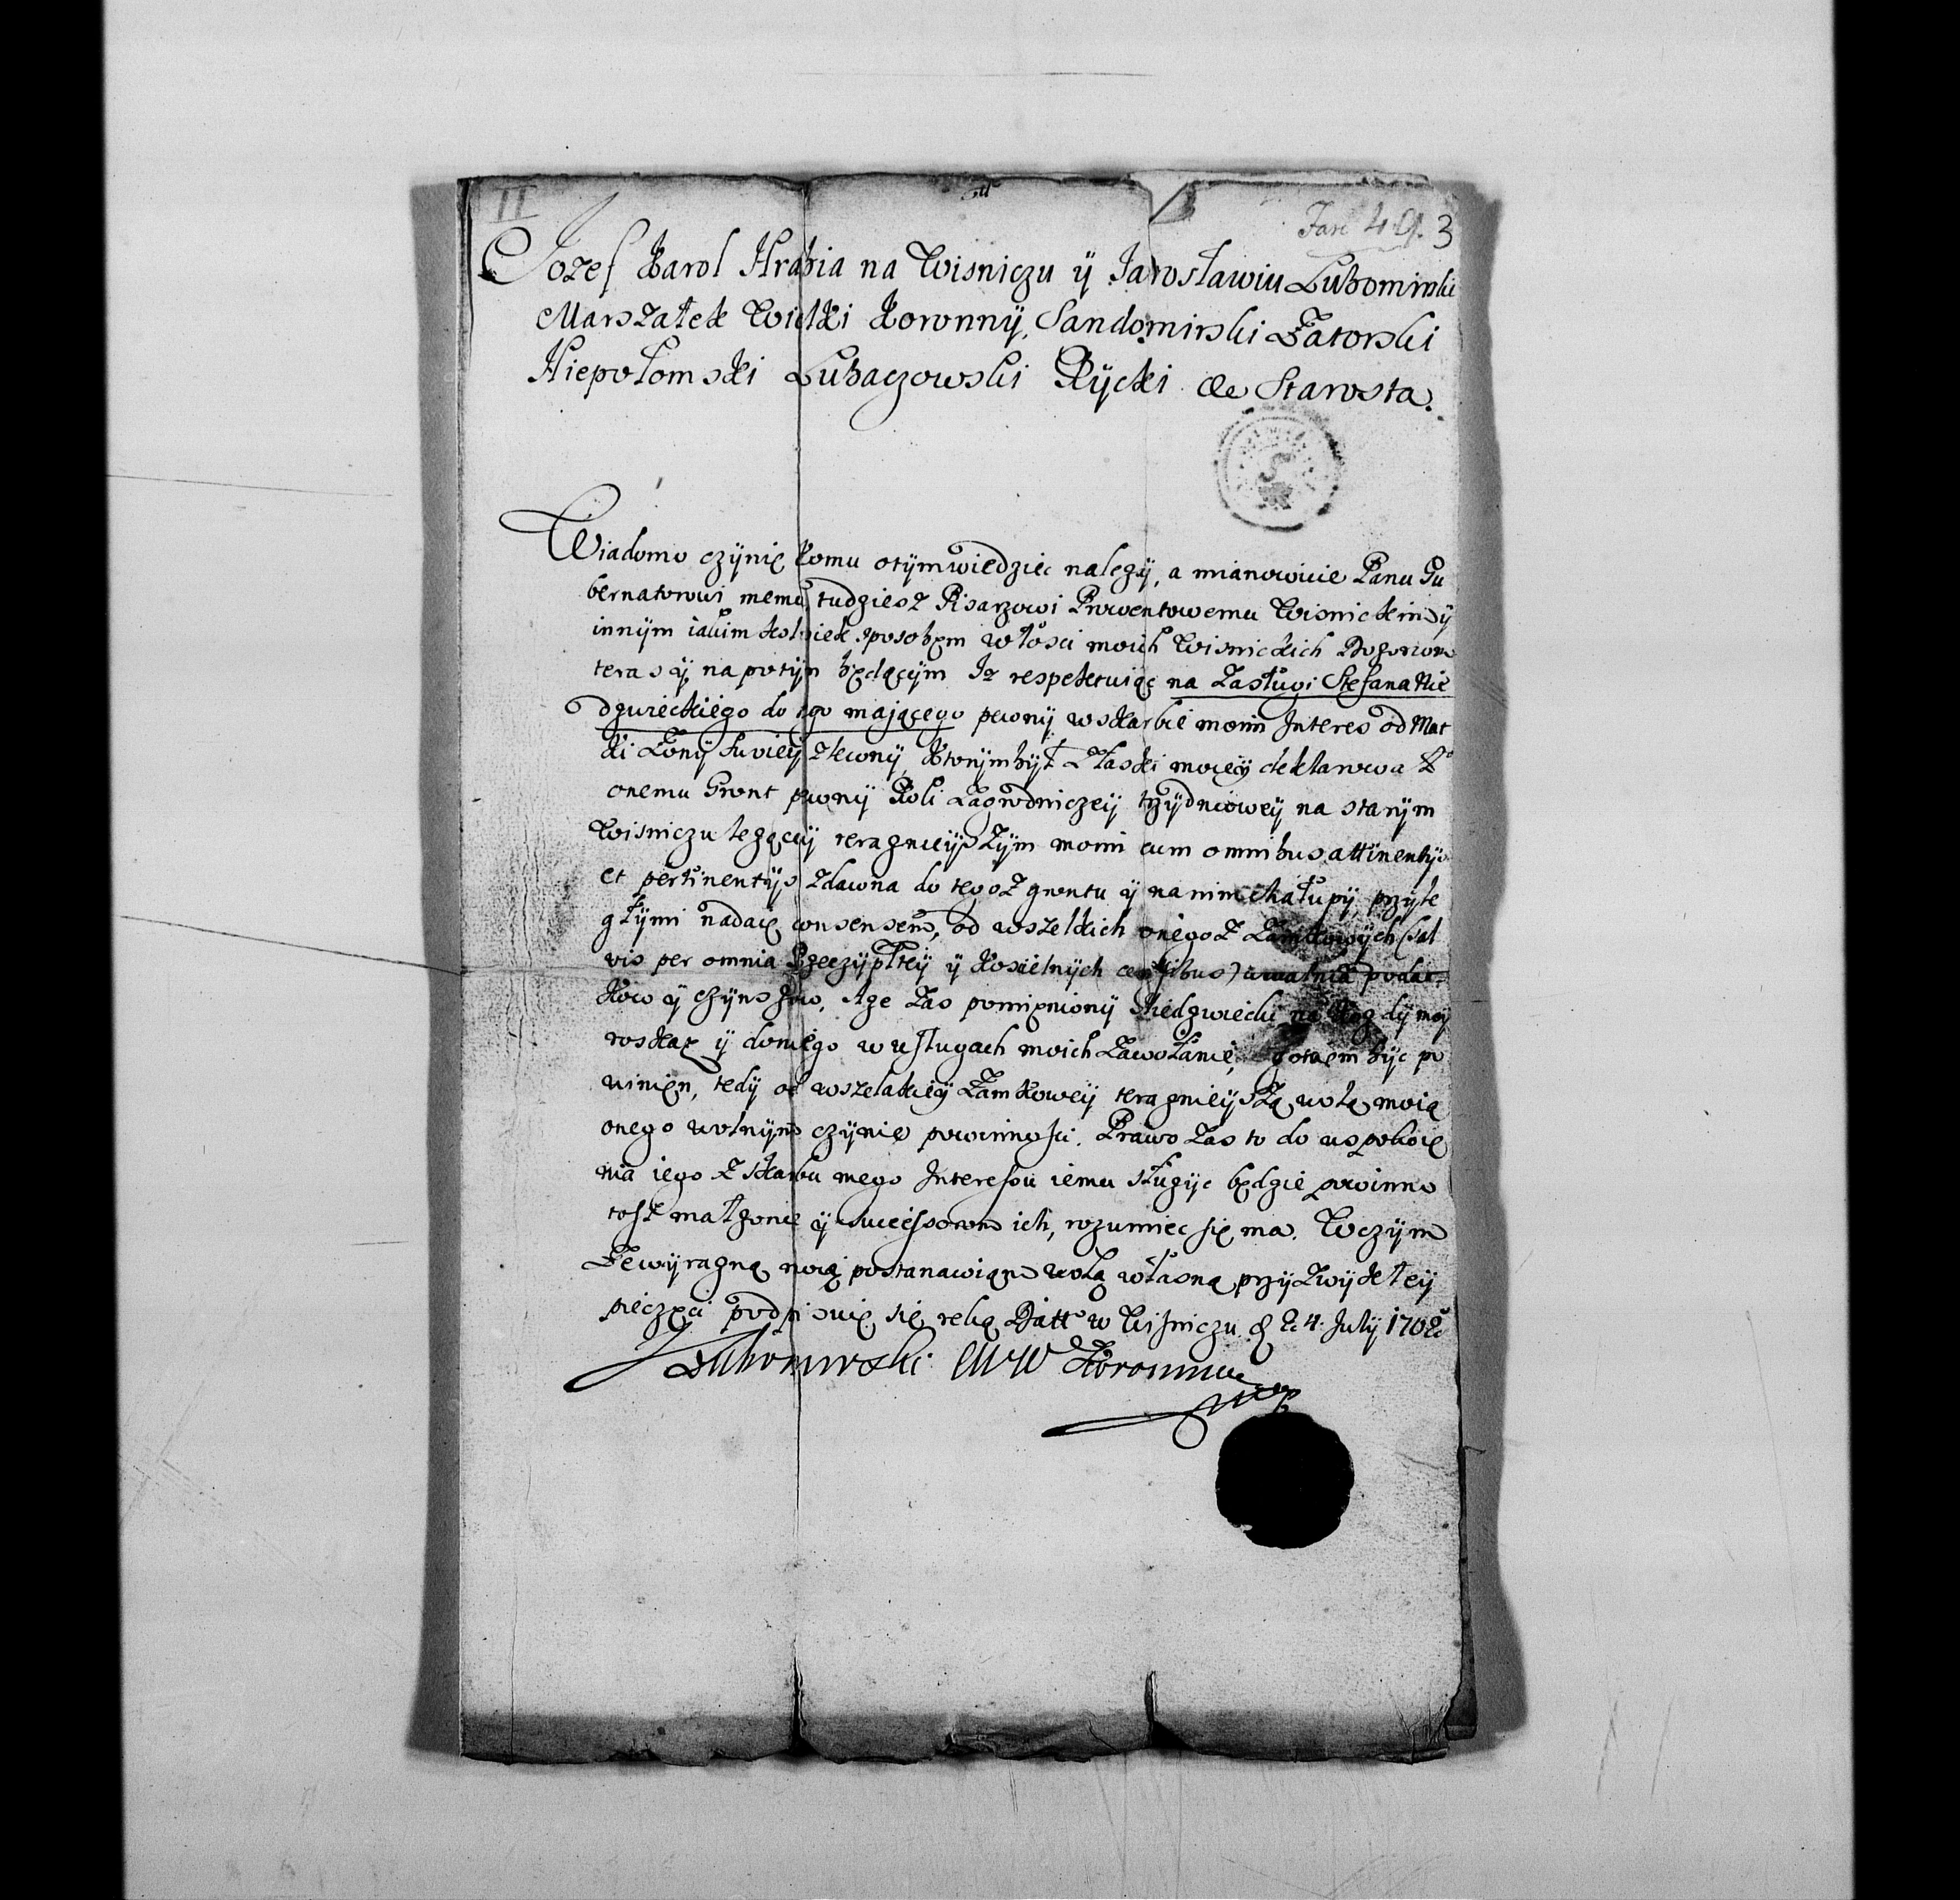 II
Fasc 49. 3
Jozef Karol Hrabia na Wisniczu ÿ Jarosławiu Lubomirski
Marszałek Wielki Koronnÿ, Sandomirski Zatorski
Niepołomski Lubaczowski Rÿcki &c Starosta.
Wiadomo czÿnię komu otÿm wiedziec nalezÿ, a mianowicie Panu Gu
bernatorowi memu tudziesz Pisarzowi Prowentowemu Wisnickim ÿ
innÿm iakim kolwiek sposobem włosci moich Wisnickich Dozorcom
teras ÿ napotÿm będącÿm Iz respektuiąc na Zasługi Stefana Nie
dzwieckiego do tego maiącego pewnÿ w skarbie moim Interes od Mat
ki Zonÿ swoieÿ zlewonÿ, ktorÿm bÿł z łaski moieÿ deklarowa
onemu Gront pewnÿ Roli Zagrodniczeÿ trzÿdniowey na starÿm
Wisniczu lezącÿ teraznieÿszÿm moim cum omnibus attinentÿs
et pertinentÿs zdawna do tegoz grontu ÿ na nim chałupÿ, przÿle
głÿmi nadaię consensem, od wszelkich onegoz Zamkowÿch (sal
vis per omnia Rzeczÿpltéÿ ÿ koscielnÿch censibus) uwalnia podat
kow ÿ czÿnszow, Aze zas pomienionÿ Niedzwiecki na kozdÿ moÿ
roskaz ÿ do niego w usługach moich zawołanie, gotowem bÿc po
winien, tedÿ od wszelakieÿ Zamkoweÿ teraznieÿszą wolą moią
onego wolnÿm czÿnię powinnosci. Prawo zas to do uspokoie
nia iego z skarbu mego Interessu iemu słuzÿc będzie powinno
tosz małzonce ÿ successorom ich, rozumiec się ma. Wczÿm
Zewÿrazną moią postanawiam wolą własną przÿ zwÿkłeÿ
pieczęci podpisuię się ręką Datt w Wisniczu d 24 Julÿ 1702
Lubomirski MW Koronnÿ